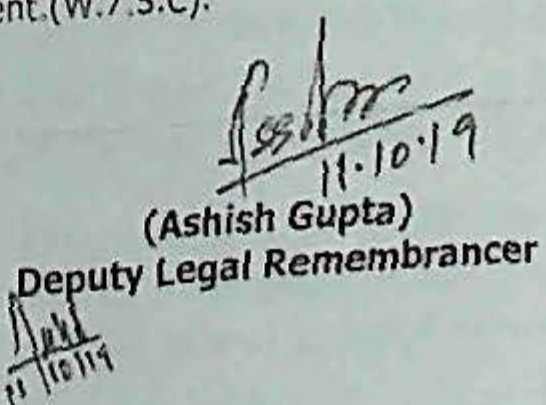 ent.(W.7.S.C).
11.10.19
(Ashish Gupta)
Deputy Legal Remembrancer
11/10/19